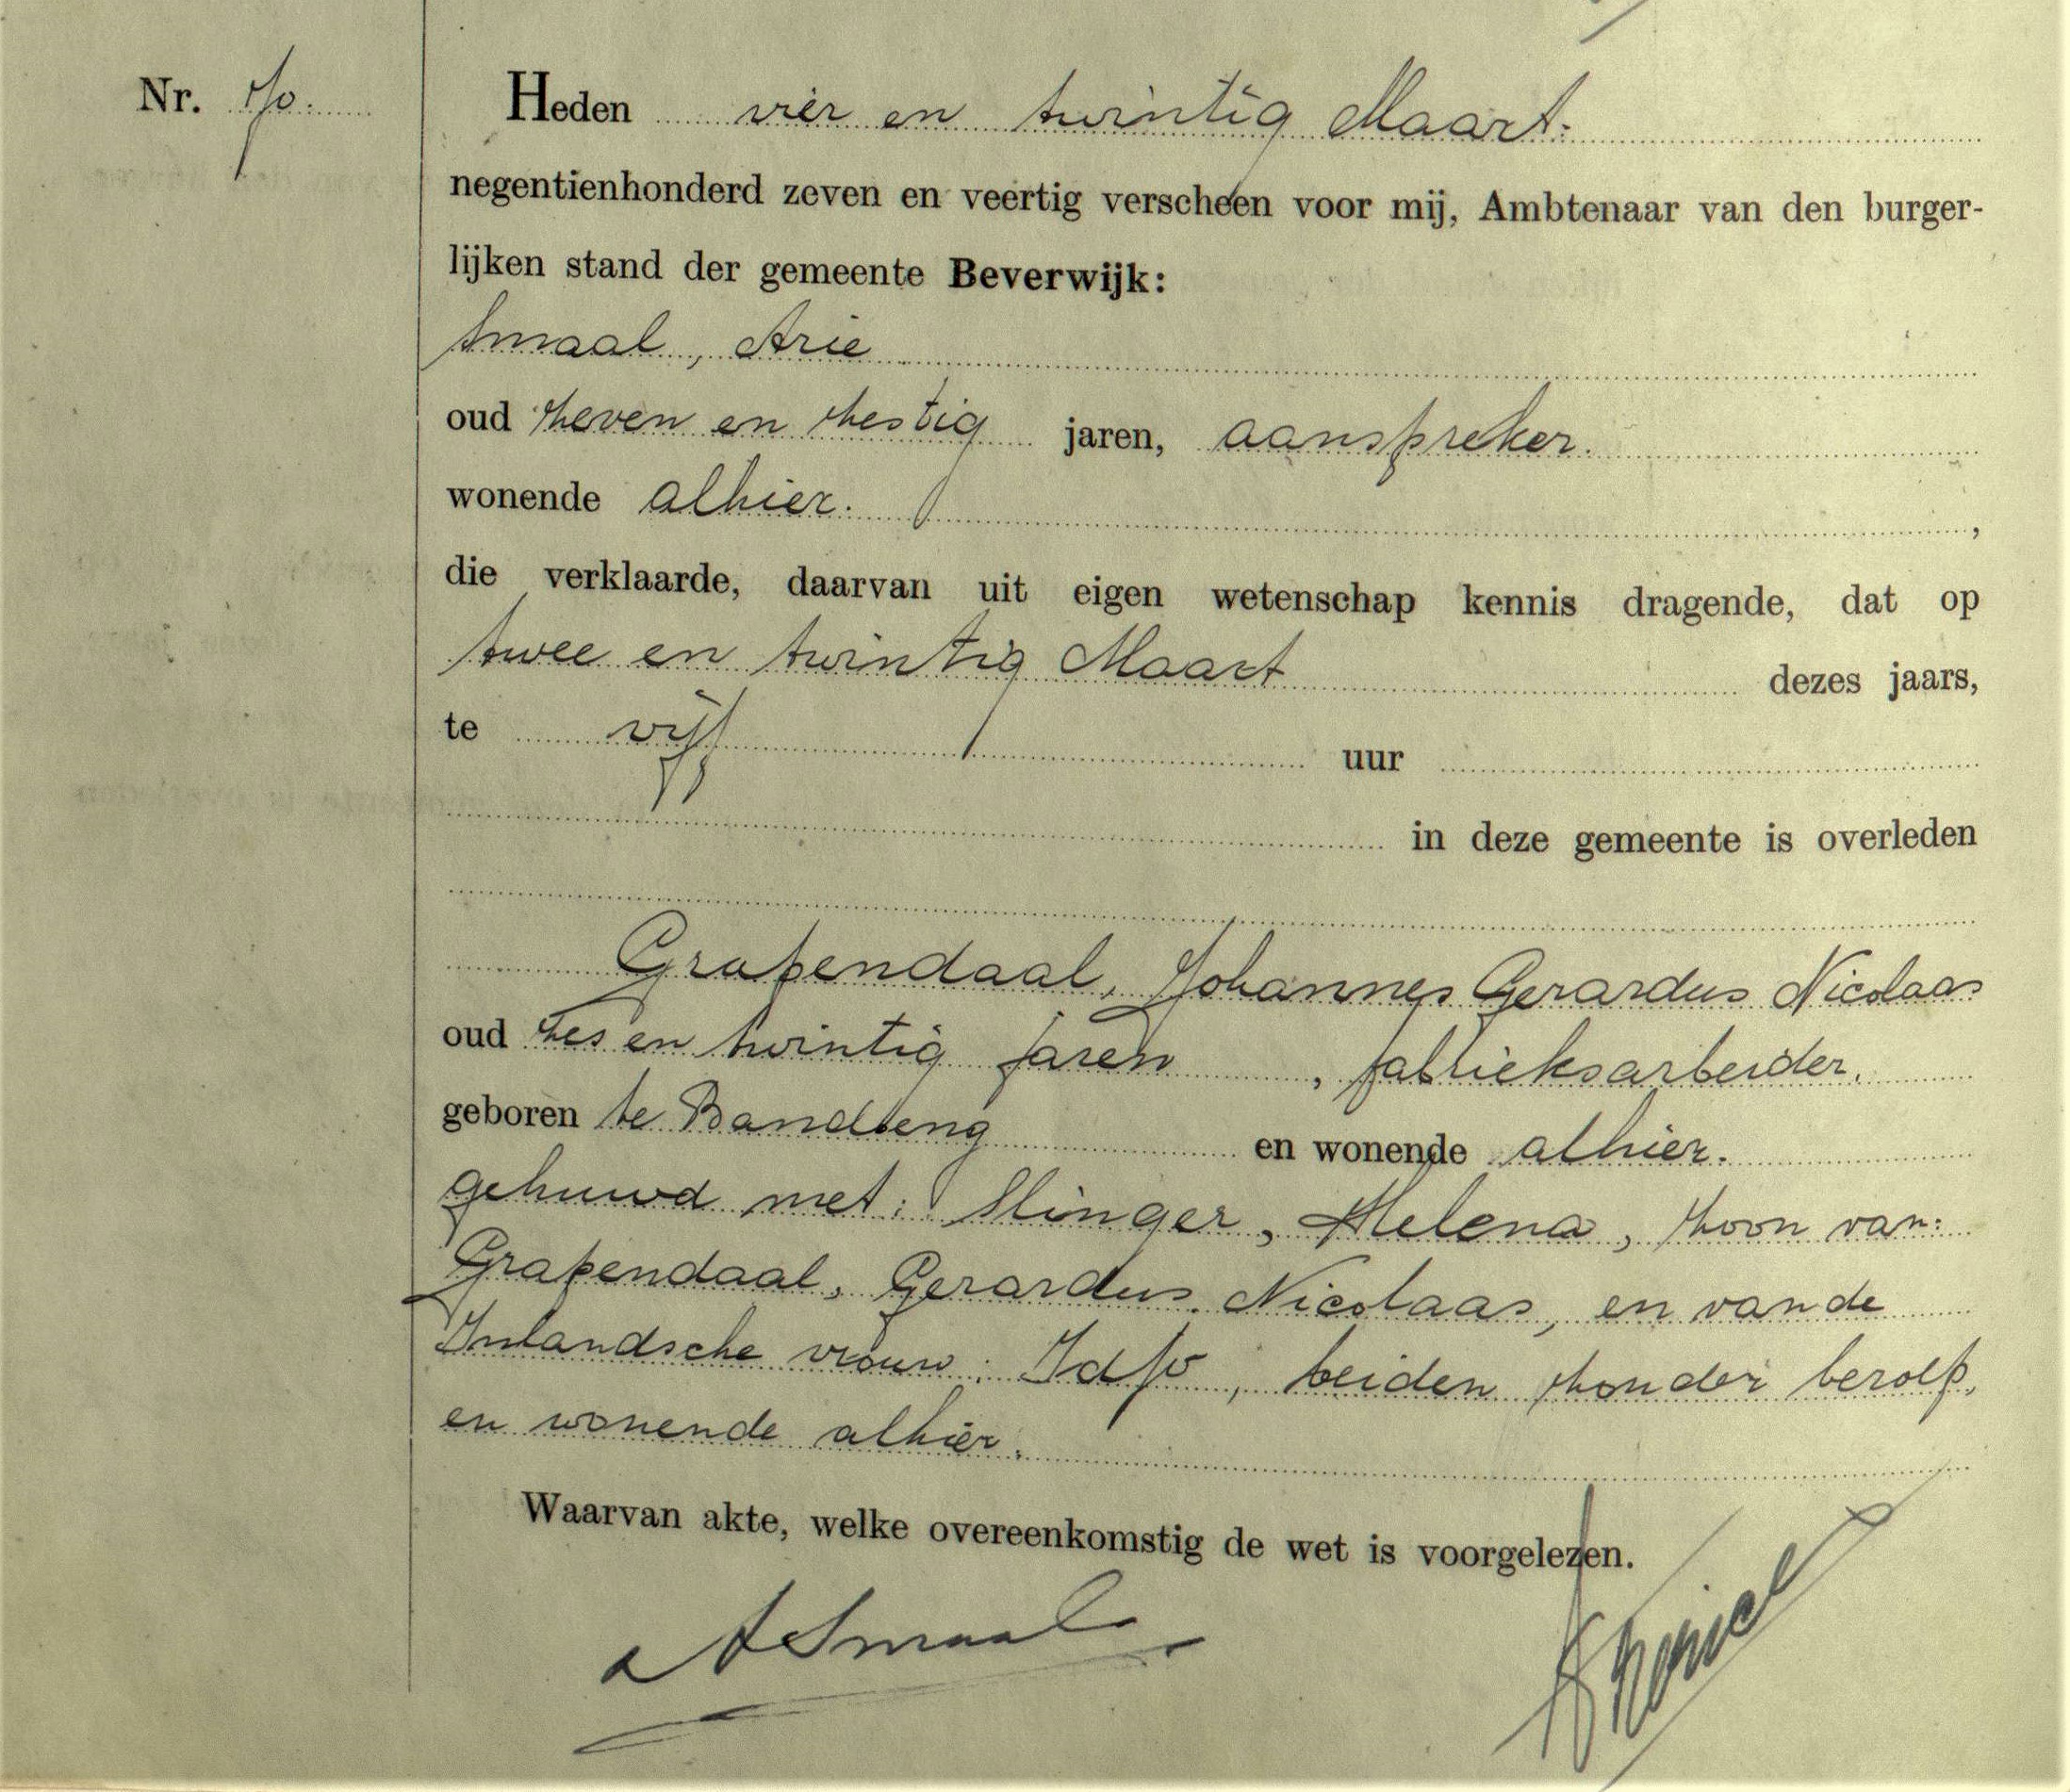 Nr. 70.
Heden vier en twintig Maart.
negentienhonderd zeven en veertig verscheen voor mij, Ambtenaar van den burger-
lijken stand der gemeente Beverwijk:
Smaal, Arie
oud zeven en zestig jaren, aanspreker.
wonende alhier.,
die verklaarde, daarvan uit eigen wetenschap kennis dragende, dat op
twee en twintig Maart dezes jaars,
te vijf uur
in deze gemeente is overleden
Grapendaal, Johannes Gerardus Nicolaas
oud zes en twintig jaren, fabrieksarbeider.
geboren te Bandoeng en wonende alhier.
gehuwd met: Slinger, Helena, zoon van:
Grapendaal, Gerardus Nicolaas, en van de
Inlandsche vrouw: beiden zonder beroep,
en wonende alhier.
Waarvan akte, welke overeenkomstig de wet is voorgelezen.
A Smaal